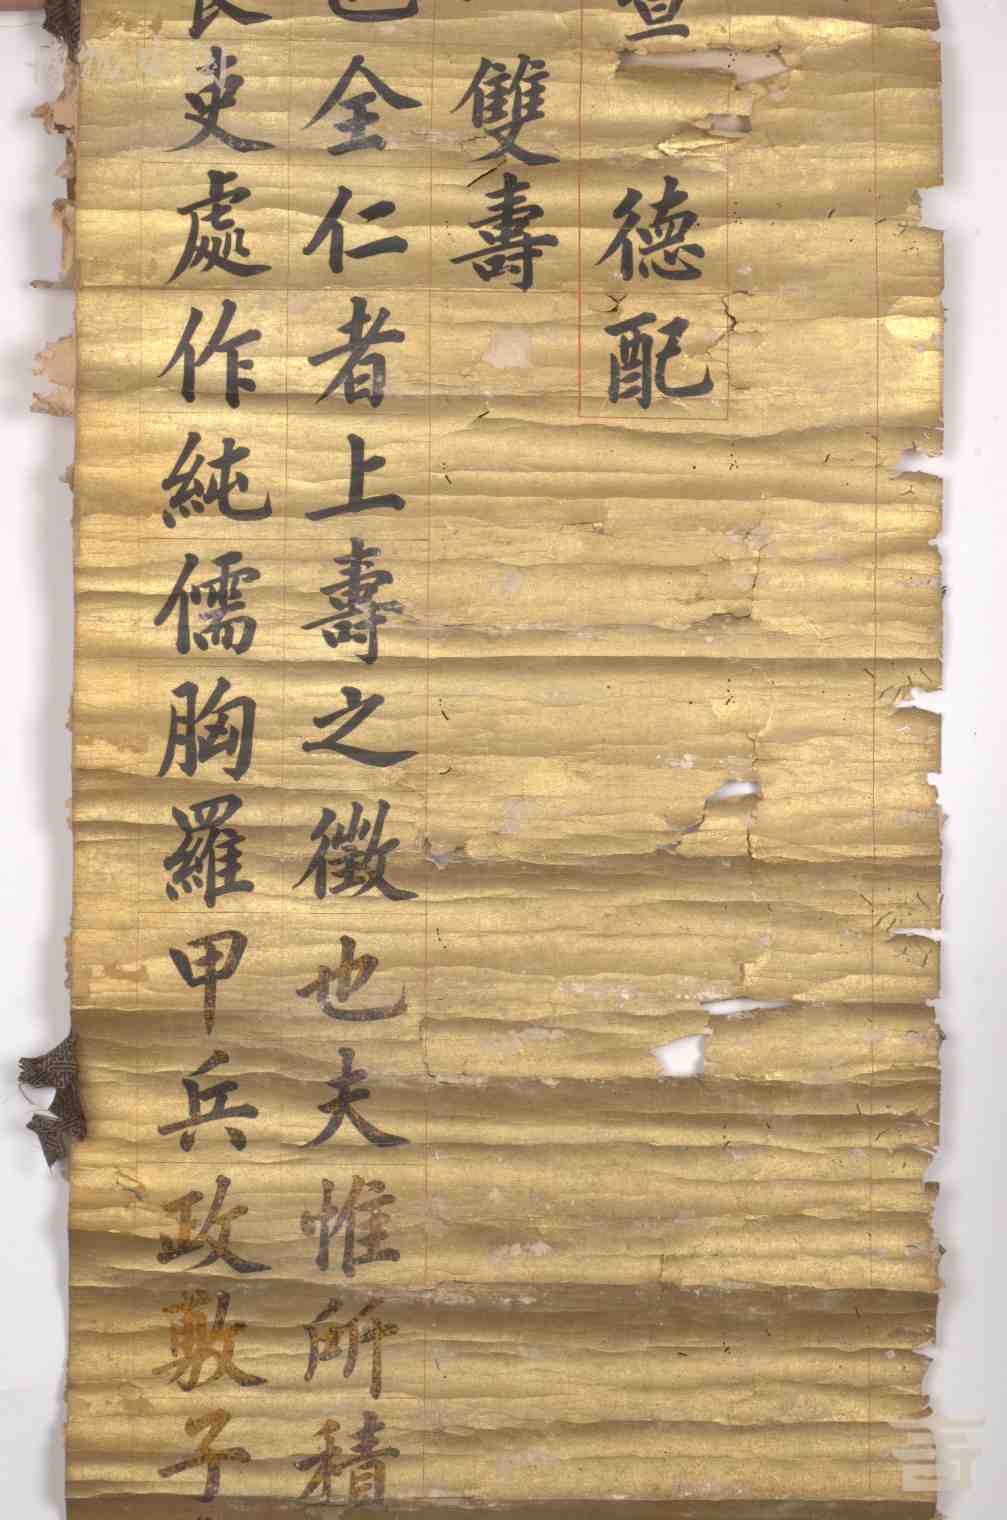 德配
雙壽
全仁者上壽之徵也夫惟所積
吏處作純儒胸羅甲兵政敷子